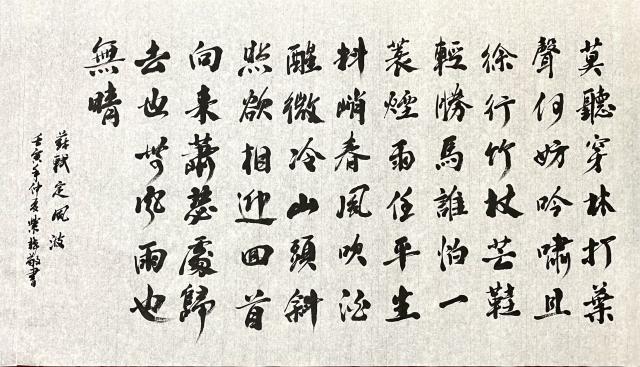 莫聽穿林打葉
聲何妨吟嘯且
徐行竹杖芒鞋
輕勝馬誰怕一
蓑煙雨任平生
料峭春風吹酒
醒微冷山頭斜
照欲相迎回首
向來蕭瑟處歸
去也無風雨也
無晴
蘇軾定風波
壬寅年仲夏敬書